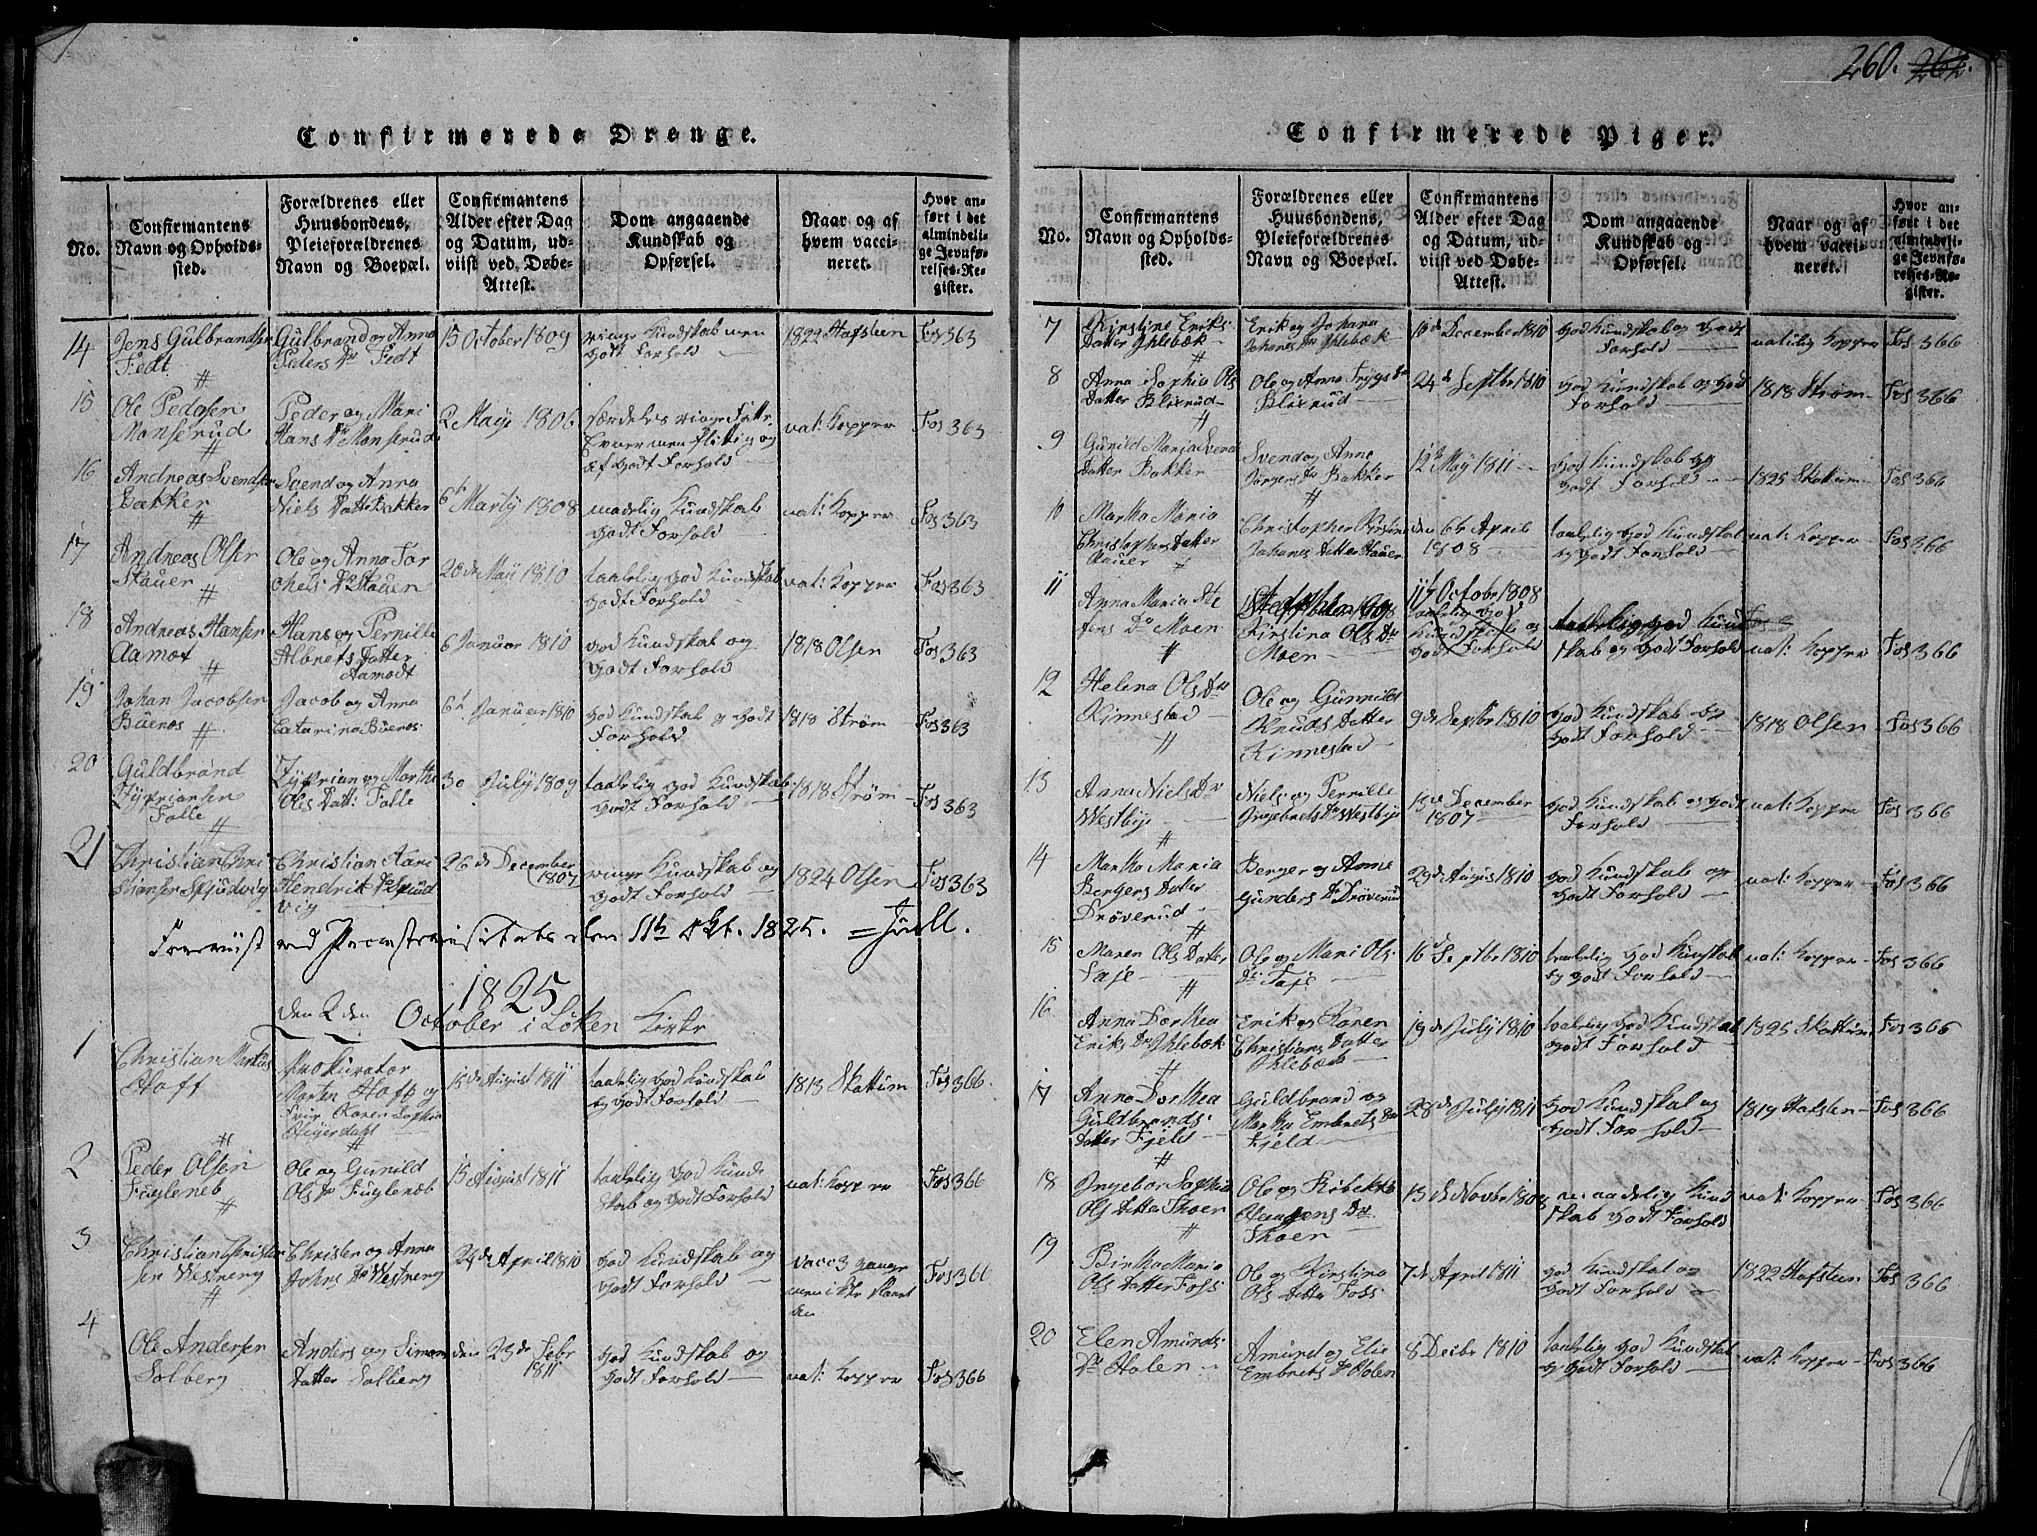 260. 262.
Confirmerede Drenge.
No.
Confirmantens
Navn og Opholds-
sted.
Forældrenes eller
Huusbondens,
Pleieforældrenes
Navn og Boepæl.
Confirmantens
Alder efter Dag
og Datum, ud-
viist ved Døbe-
Attest.
Dom angaaende
Kundskab og
Opførsel.
Naar og af
hvem vacci-
neret.
Hvor an-
ført i det
almindeli-
ge Jevnfø-
relses-Re-
gister.
14
Jens Gulbrandsen
Fedt
Gulbrand og Anna
Peders Dr Fedt
15 October 1809
ringe Kundskab men
godt Forhold
1822 Hafsteen
Fos 363
15
Ole Pedersen
Monserud
Peder og Mari
Hans Dr Monserud
2 Maji 1806
særdeles ringe Fatte
Evner men flittig og
af godt Forhold
nat: Kopper
Fos 363
16
Andreas Svendsen
Bakker
Svend og Anna
Niels Datter Bakker
6th Martj 1808
maadelig Kundskab
godt Forhold
nat: Kopper
Fos 363
17
Andreas Olsen
Stauer
Ole og Anna Tor
chels Dr Stauer
20de Maji 1810
taalelig god Kundskab
godt Forhold
nat: Kopper
Fos 363
18
Andreas Hansen
Aamot
Hans og Pernille
Albrets Datter
Aamodt
6 Januar 1810
god Kundskab og
godt Forhold
1818 Olsen
Fos 363
19
Johan Jacobsen
Buenæs
Jacob og Anna
Catarina Buenæs
6th Januar 1810
god Kundskab og godt
Forhold
1818 Strøm
Fos 363
20
Guldbrand
Zypriansen
Falle
Zyprian og Marthe
Ols Datt: Falle
30 July 1809
taalelig god Kundskab
godt Forhold
1818 Strøm
Fos 363
21
Christian Chri
stiansen Skjudvig
Christian Kari
Hendrik Dr Skjud
vig
26de December
1807
ringe Kundskab og
godt Forhold
1824 Olsen
Fos 363
Foreviist ved Provstevisitats den 11te Sept. 1825.
1825
den 2den October i Løken Kirke
1
Christian Martin
Hoff
Prokurator
Morten Hoff og
Frue Karen Sophia
15de August 1811
taalelig god Kundskab
og godt Forhold
1813 Skattum
Fos 366.
2
Peder Olsen
Fugleneb
Ole og Gunild
Ols Dr Fuglenæb
15 August 1811
taalelig god Kund
skab og godt Forhold
nat: Kopper
Fos 366
3
Christian Christer
sen Vestreng
Christer og Anna
Johns Dr Vestreng
24de April 1810
god Kundskab og
godt Forhold
vacc 3 gange
men ikke slaaet
an
Fos 366
4
Ole Andersen
Solberg
Anders og Simons
Datter Solberg
den 23de Febr
1811
god Kundskab og
godt Forhold
nat: Kopper
Fos 366
Confirmerede Piger.
No.
Confirmantens
Navn og Opholds-
sted.
Forældrenes eller
Huusbondens,
Pleieforældrenes
Navn og Boepæl.
Confirmantens
Alder efter Dag
og Datum, ud-
viist ved Døbe-
Attest.
Dom angaaende
Kundskab og
Opførsel.
Naar og af
hvem vacci-
neret.
Hvor an-
ført i det
almindeli-
ge Jevnfø-
relses-Re-
gister.
7
Kirstine Eriks
datter Ihlebæk
Erik og Johana
Johanes Dr Ihlebæk
10de December 1810
god Kundskab og godt
Forhold
natürlig Kopper
Fos 366
8
Anna Sophia Ols
datter Blixrud
Ole og Anna Trygs Dr
Blixrud
24de Septbr 1810
god Kundskab og god
Forhold
1818 Strøm
Fos 366
9
Gunild Maria Svens
datter Bakker
Svend og Anne
Jørgens Dr Bakker
12te Maÿ 1811
god Kundskab og
godt Forhold
1825 Skattum
Fos 366
10
Martha Maria
Christophers datter
Stauer
Christopher Kirstine
Johanes datter Stauer
den 6te April
1808
taalelig god Kundskab
og godt Forhold
nat: Kopper
Fos 366
11
Anna Maria Ste
fens Dr Moen
Kirstina Ols Dr
Moen
11te October 1808
taalelig god
Kundskab og
godt Forhold
taalelig god Kund
skab og godt Forhold
nat: Kopper
Fos 366
12
Helena Ols Dr
Kinnestad
Ole og Gunnild
Knuds Datter
Kinnestad
9de Septbr 1810
god Kundskab og
godt Forhold
1818 Olsen
Fos 366
13
Anna Niels Dr
Westbye
Niels og Pernille
Ingebrets Dr Westbye
15de December
1807
god Kundskab og godt
Forhold
nat: Kopper
Fos 366
14
Martha Maria
Bergers datter
Drøverud
Berger og Anne
Gunders Dr Drøverud
29de Augus 1810
god Kundskab og
godt Forhold
nat: Kopper
Fos 366
15
Maren Ols Datter
Taje
Ole og Mari Ols
Dr Taje
16de Septbr 1810
taalelig god Kunskab
og godt Forhold
nat: Kopper
Fos 366
16
Anna Dorthea
Eriks Dr Ihlebæk
Erik og Karen
Christians Datter
Ihlebæk
19de July 1810
taalelig god Kundskab
godt Forhold
1825 Skattum
Fos 366
17
Anna Dorthea
Guldbrands
datter Fjeld
Guldbrand og
Martha Embrets Dr
Fjeld
28de July 1811
god Kundskab og
godt Forhold
1819 Hafsten
Fos 366
18
Ingebor Sophia
Ols datter Skoer
Ole og Rebekka
Skoer
13de Novbr
maadelig Kund
skab godt Forhold
nat: Kopper
Fos 366
19
Birtha Maria
Ols datter Foss
Ole og Kirstina
Ols datter Foss
7de April 1811
god Kundskab og
godt Forhold
1822 Hafsteen
Fos 366
20
Elen Amunds
Dr Holen
Amund og Elie
Embrets Dr Holen
8 Decbr 1810
taalelig god Kundskab
og godt Forhold
nat: Kopper
Fos 366